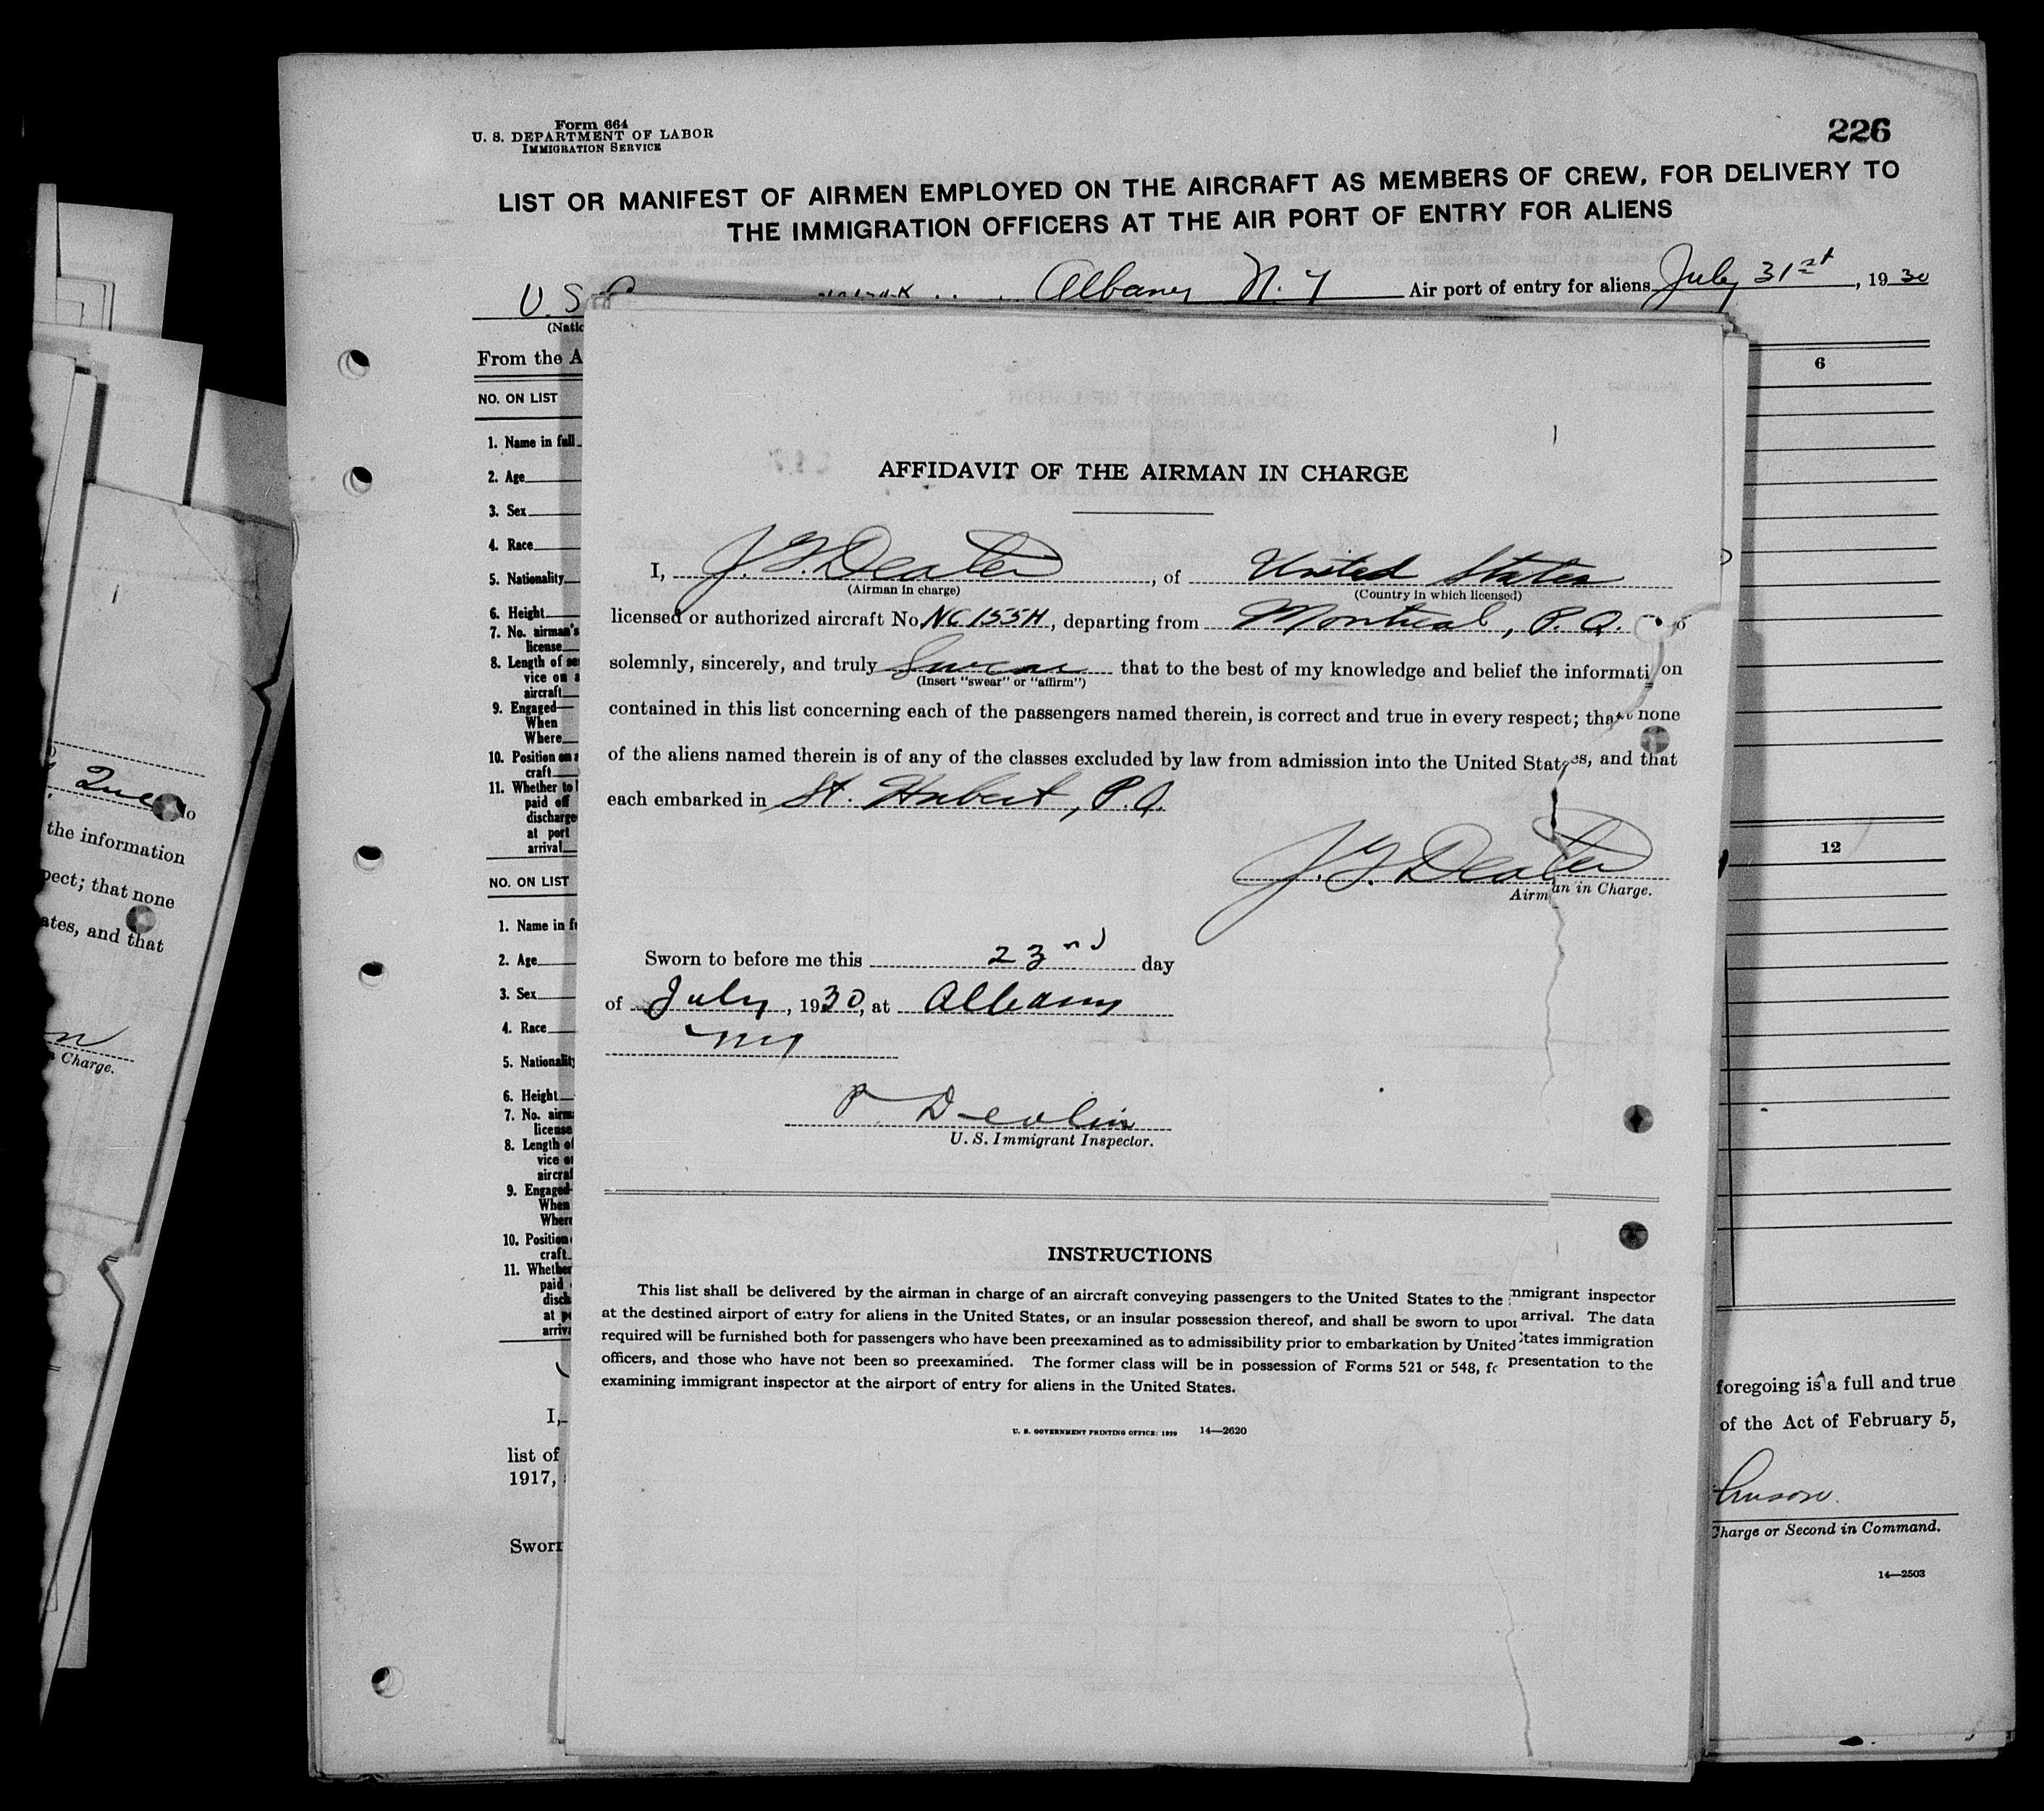 Form 664
U. S. DEPARTMENT OF LABOR
IMMIGRATION SERVICE
226
LIST OR MANIFEST OF AIRMEN EMPLOYED ON THE AIRCRAFT AS MEMBERS OF CREW, FOR DELIVERY TO
THE IMMIGRATION OFFICERS AT THE AIR PORT OF ENTRY FOR ALIENS
U.S. Albany N.Y Air port of entry for aliens July 31st, 1930
From the A
6
NO. ON LIST
1. Name in full
2. Age
3. Sex
4. Race
5. Nationality
6. Height
7. No. airman's
license
8. Length of ser
vice on a
aircraft
9. Engaged—
When
Where
10. Position on a
craft
11. Whether to b
paid off
discharge
at port
arrival
12
NO. ON LIST
1. Name in fu
2. Age
3. Sex
4. Race
5. Nationality
6. Height
7. No. airm
license
8. Length of
vice on
aircraf
9. Engaged
When
Where
10. Position
craft
11. Whether
paid
disch
at po
arriva
I,
list of
1917,
Sworn
foregoing is a full and true
of the Act of February 5,
Charge or Second in Command.
14—2503
AFFIDAVIT OF THE AIRMAN IN CHARGE
I, J. G. Dexter, of United States
(Airman in charge) (Country in which licensed)
licensed or authorized aircraft No. NC 155H, departing from Montreal, P.Q. o
solemnly, sincerely, and truly Swear that to the best of my knowledge and belief the information
(Insert "swear" or "affirm")
contained in this list concerning each of the passengers named therein, is correct and true in every respect; that none
of the aliens named therein is of any of the classes excluded by law from admission into the United States, and that
each embarked in St. Hubert, P.Q.
J. G. Dexter
Airman in Charge.
Sworn to before me this 23nd day
of July, 1930, at Albany
NY
P Devlin
U. S. Immigrant Inspector.
INSTRUCTIONS
This list shall be delivered by the airman in charge of an aircraft conveying passengers to the United States to the immigrant inspector
at the destined airport of entry for aliens in the United States, or an insular possession thereof, and shall be sworn to upon arrival. The data
required will be furnished both for passengers who have been preexamined as to admissibility prior to embarkation by United States immigration
officers, and those who have not been so preexamined. The former class will be in possession of Forms 521 or 548, for presentation to the
examining immigrant inspector at the airport of entry for aliens in the United States.
U. S. GOVERNMENT PRINTING OFFICE: 1929 14—2620
Que
the information
pect; that none
ates, and that
Charge.